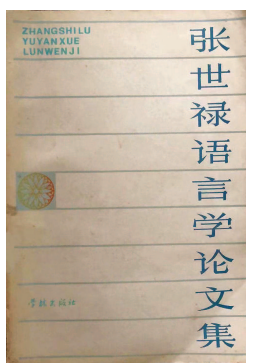 ZHANGSHILU
YUYANXUE
LUNWENJI
张世禄语言学论文集
学林出版社